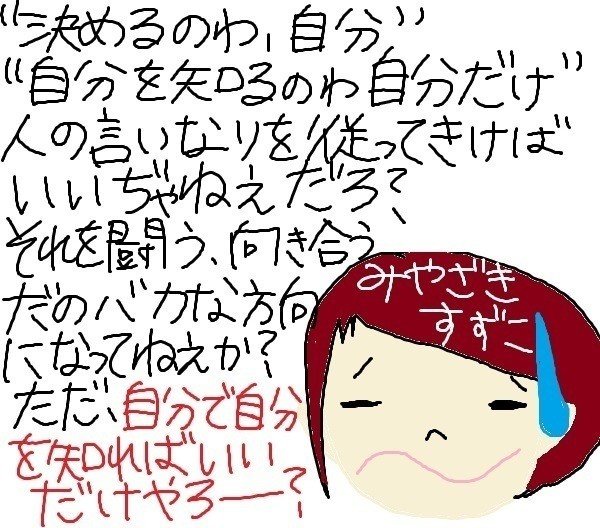 “決めるのわ,自分”
“自分を知るのわ自分だけ”
人の言いなりを従ってきけば
いいぢゃねぇだろ?
それを闘う、向き合う
だのバカな方向
になってねえか?
ただ、自分で自分
を知ればいい
だけやろー?
みやざき
すずこ